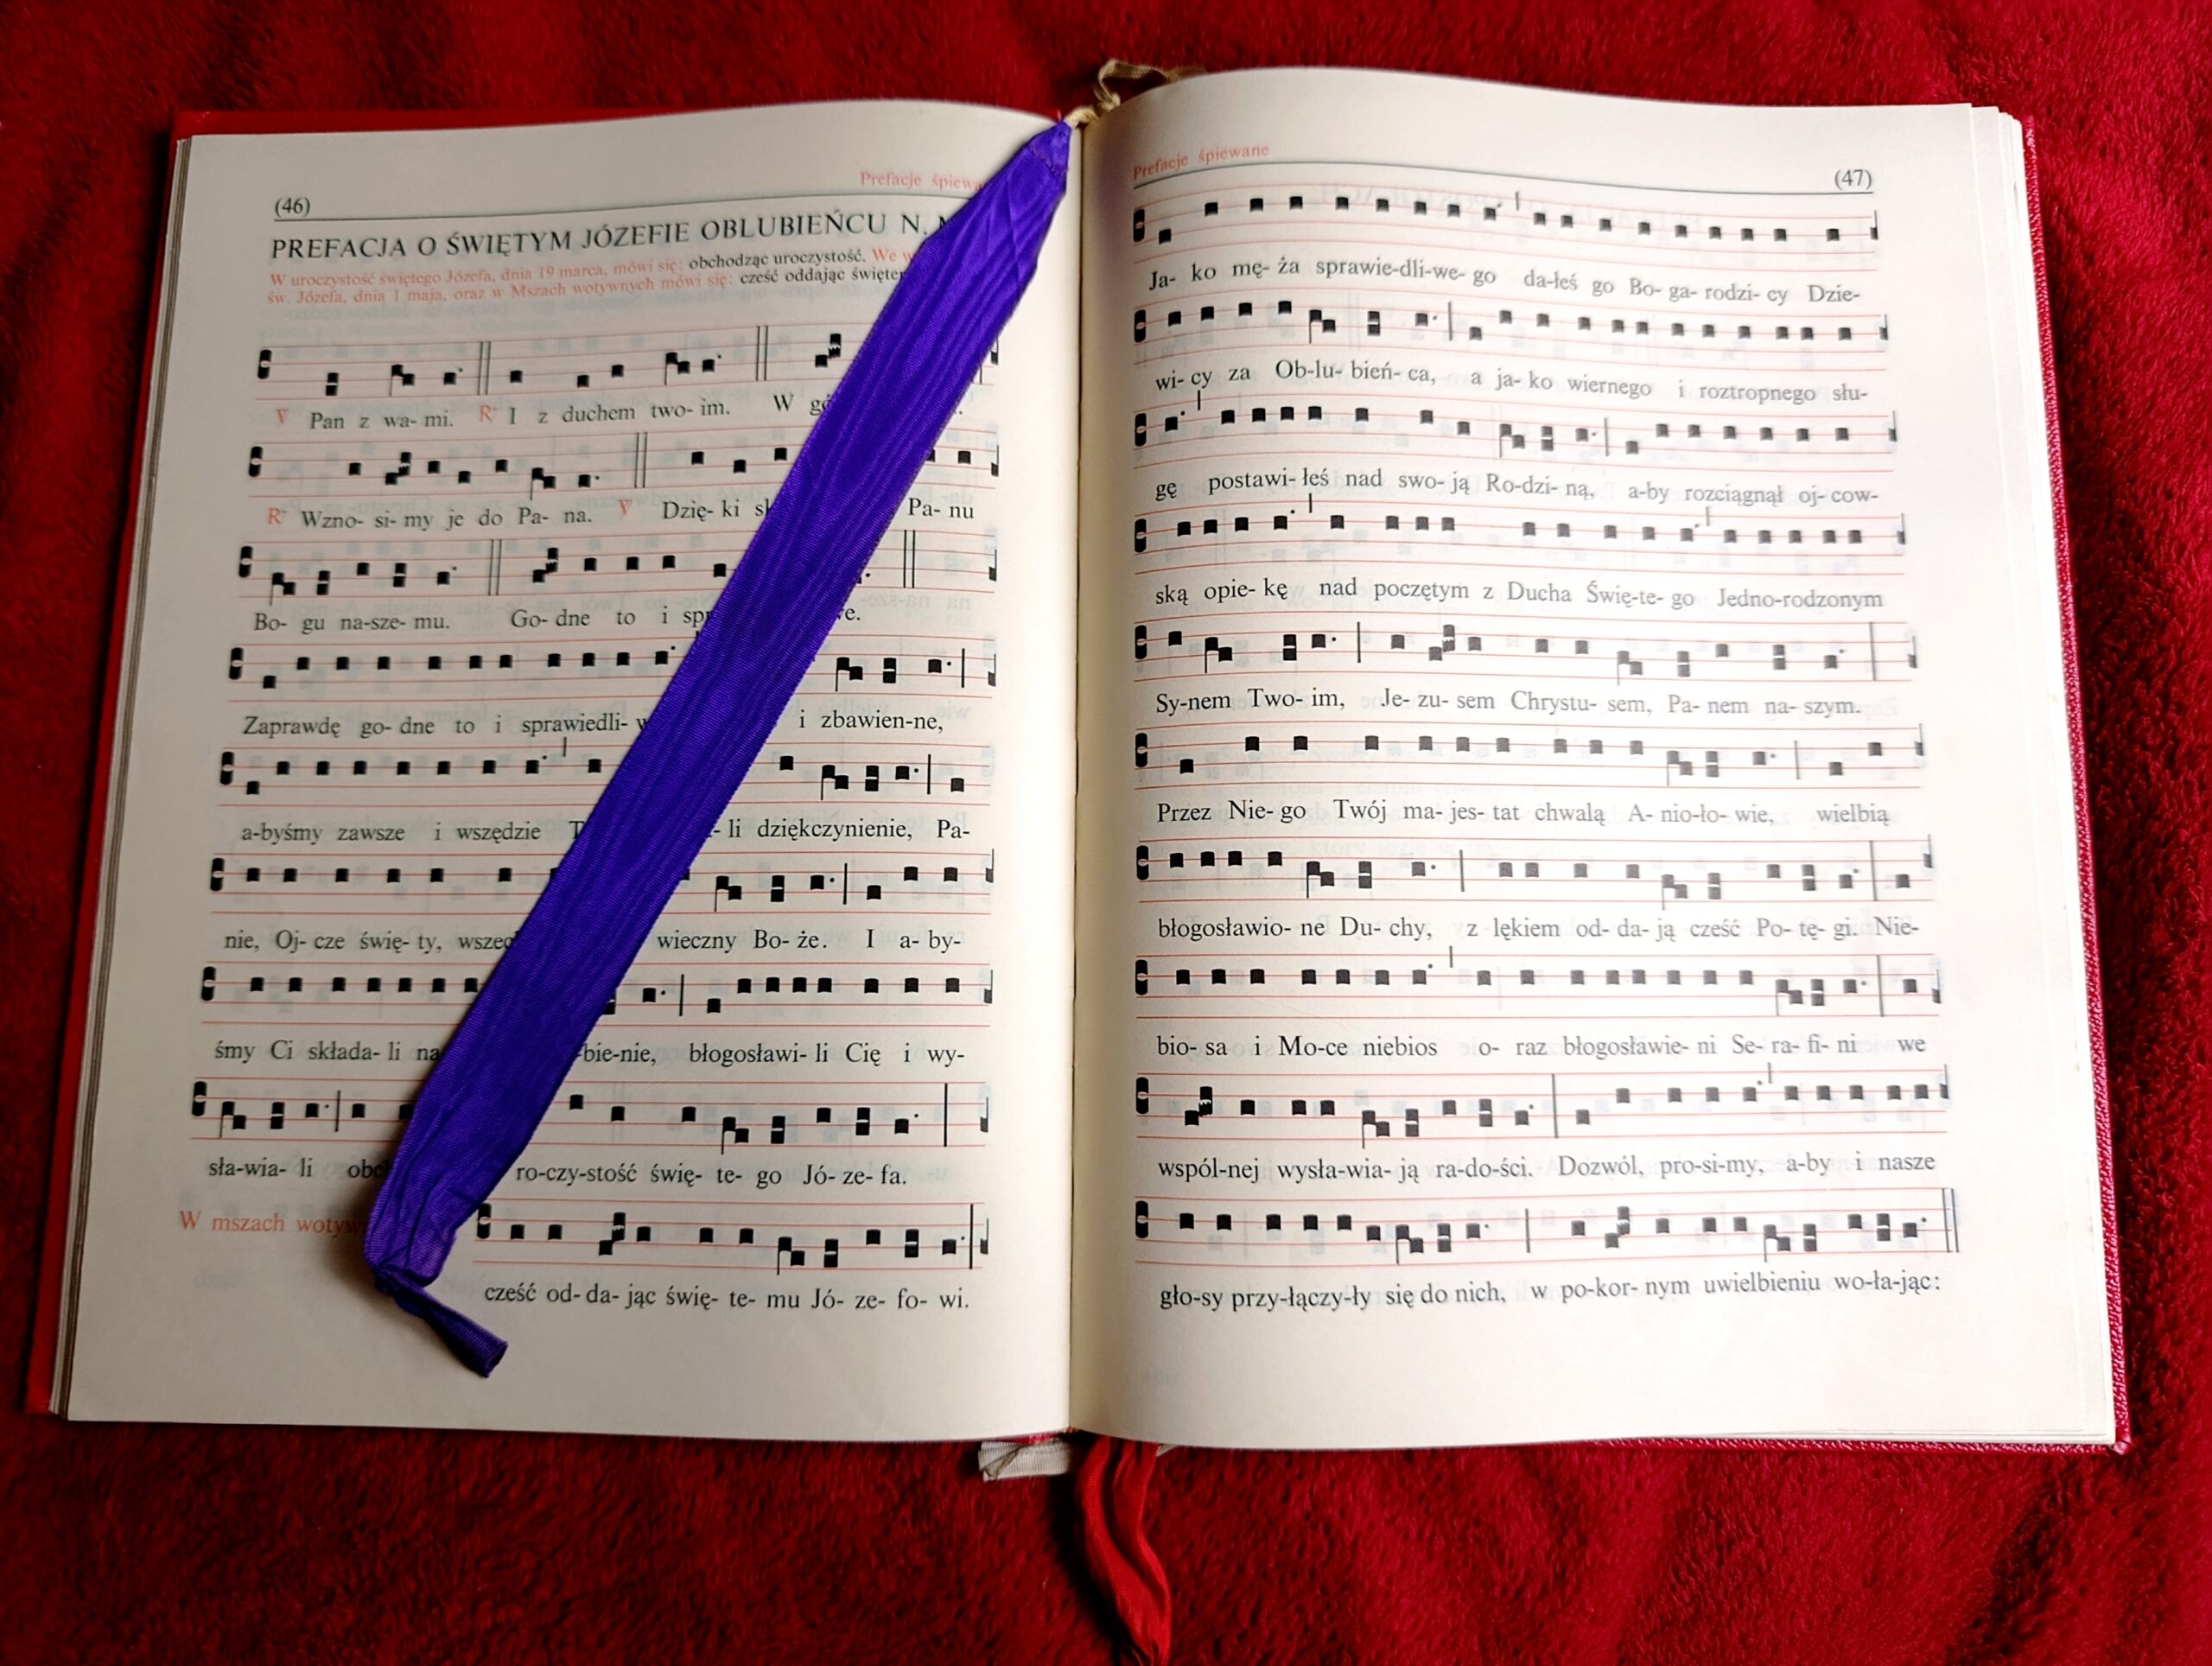 Prefacje
(46)
PREFACJA O ŚWIĘTYM JÓZEFIE OBLUBIEŃCU N.
W uroczystość świętego Józefa, dnia 19 marca, mówi się: obchodząc uroczystość. We
św. Józefa, dnia 1 maja, oraz w Mszach wotywnych mówi się: cześć oddając
V Pan z wa- mi. R I z duchem two- im. W
R Wzno- si- my je do Pa- na. V Dzię- ki Pa- nu
Bo- gu na-sze- mu. Go- dne to i
Zaprawdę go- dne to i sprawiedli- i zbawien-ne,
a-byśmy zawsze i wszędzie li dziękczynienie, Pa-
nie, Oj- cze świę- ty, wieczny Bo- że. I a- by-
śmy Ci składa- li bie-nie, błogosławi- li Cię i wy-
sła-wia- li ro-czy-stość świę- te- go Jó- ze- fa.
W mszach
cześć od- da- jąc świę- te- mu Jó- ze- fo- wi.
Prefacje śpiewane
(47)
Ja- ko mę- ża sprawie-dli-we- go da-łeś go Bo- ga- rodzi- cy Dzie-
wi- cy za Ob-lu- bień- ca, a ja- ko wiernego i roztropnego słu-
gę postawi- łeś nad swo- ją Ro-dzi- ną, a-by rozciągnął oj- cow-
ską opie- kę nad poczętym z Ducha Świę-te- go Jedno-rodzonym
Sy-nem Two- im, Je- zu- sem Chrystu- sem, Pa- nem na- szym.
Przez Nie- go Twój ma- jes- tat chwalą A- nio-ło- wie, wielbią
błogosławio- ne Du- chy, z lękiem od- da- ją cześć Po- tę- gi. Nie-
bio- sa i Mo-ce niebios o- raz błogosławie- ni Se- ra- fi- ni we
wspól-nej wysła-wia- ją ra-do-ści. Dozwól, pro-si-my, a-by i nasze
gło-sy przy-łączy-ły się do nich, w po-kor- nym uwielbieniu wo-ła-jąc: